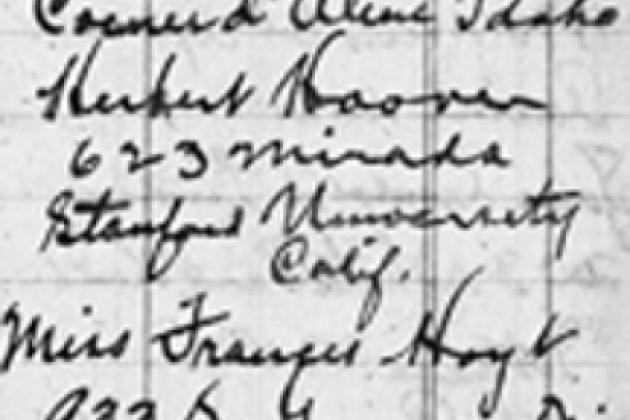 Coeur d'Alene Idaho
Herbert Hoover
623 Mirada
Stanford University
Calif.
Miss Frances Hoyt